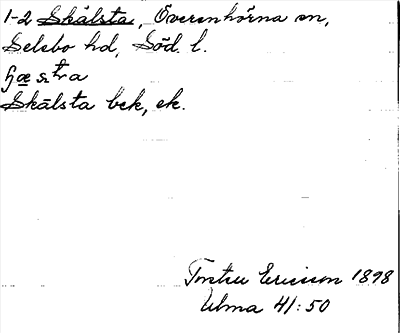 1-2 Skälsta, Överenhörna sn,
Selebo hd, Söd. l.
Skälsta bck, ek.
Torsten Ericsson 1898
Ulma 41:50